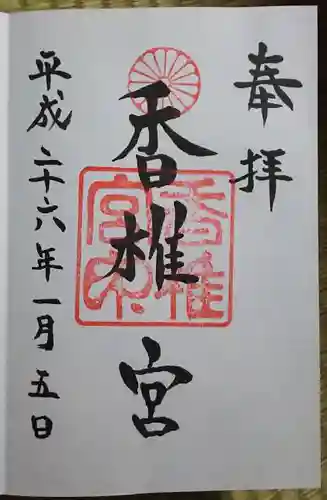 奉拝
香椎宮
香椎宮印
平成二十六年一月五日